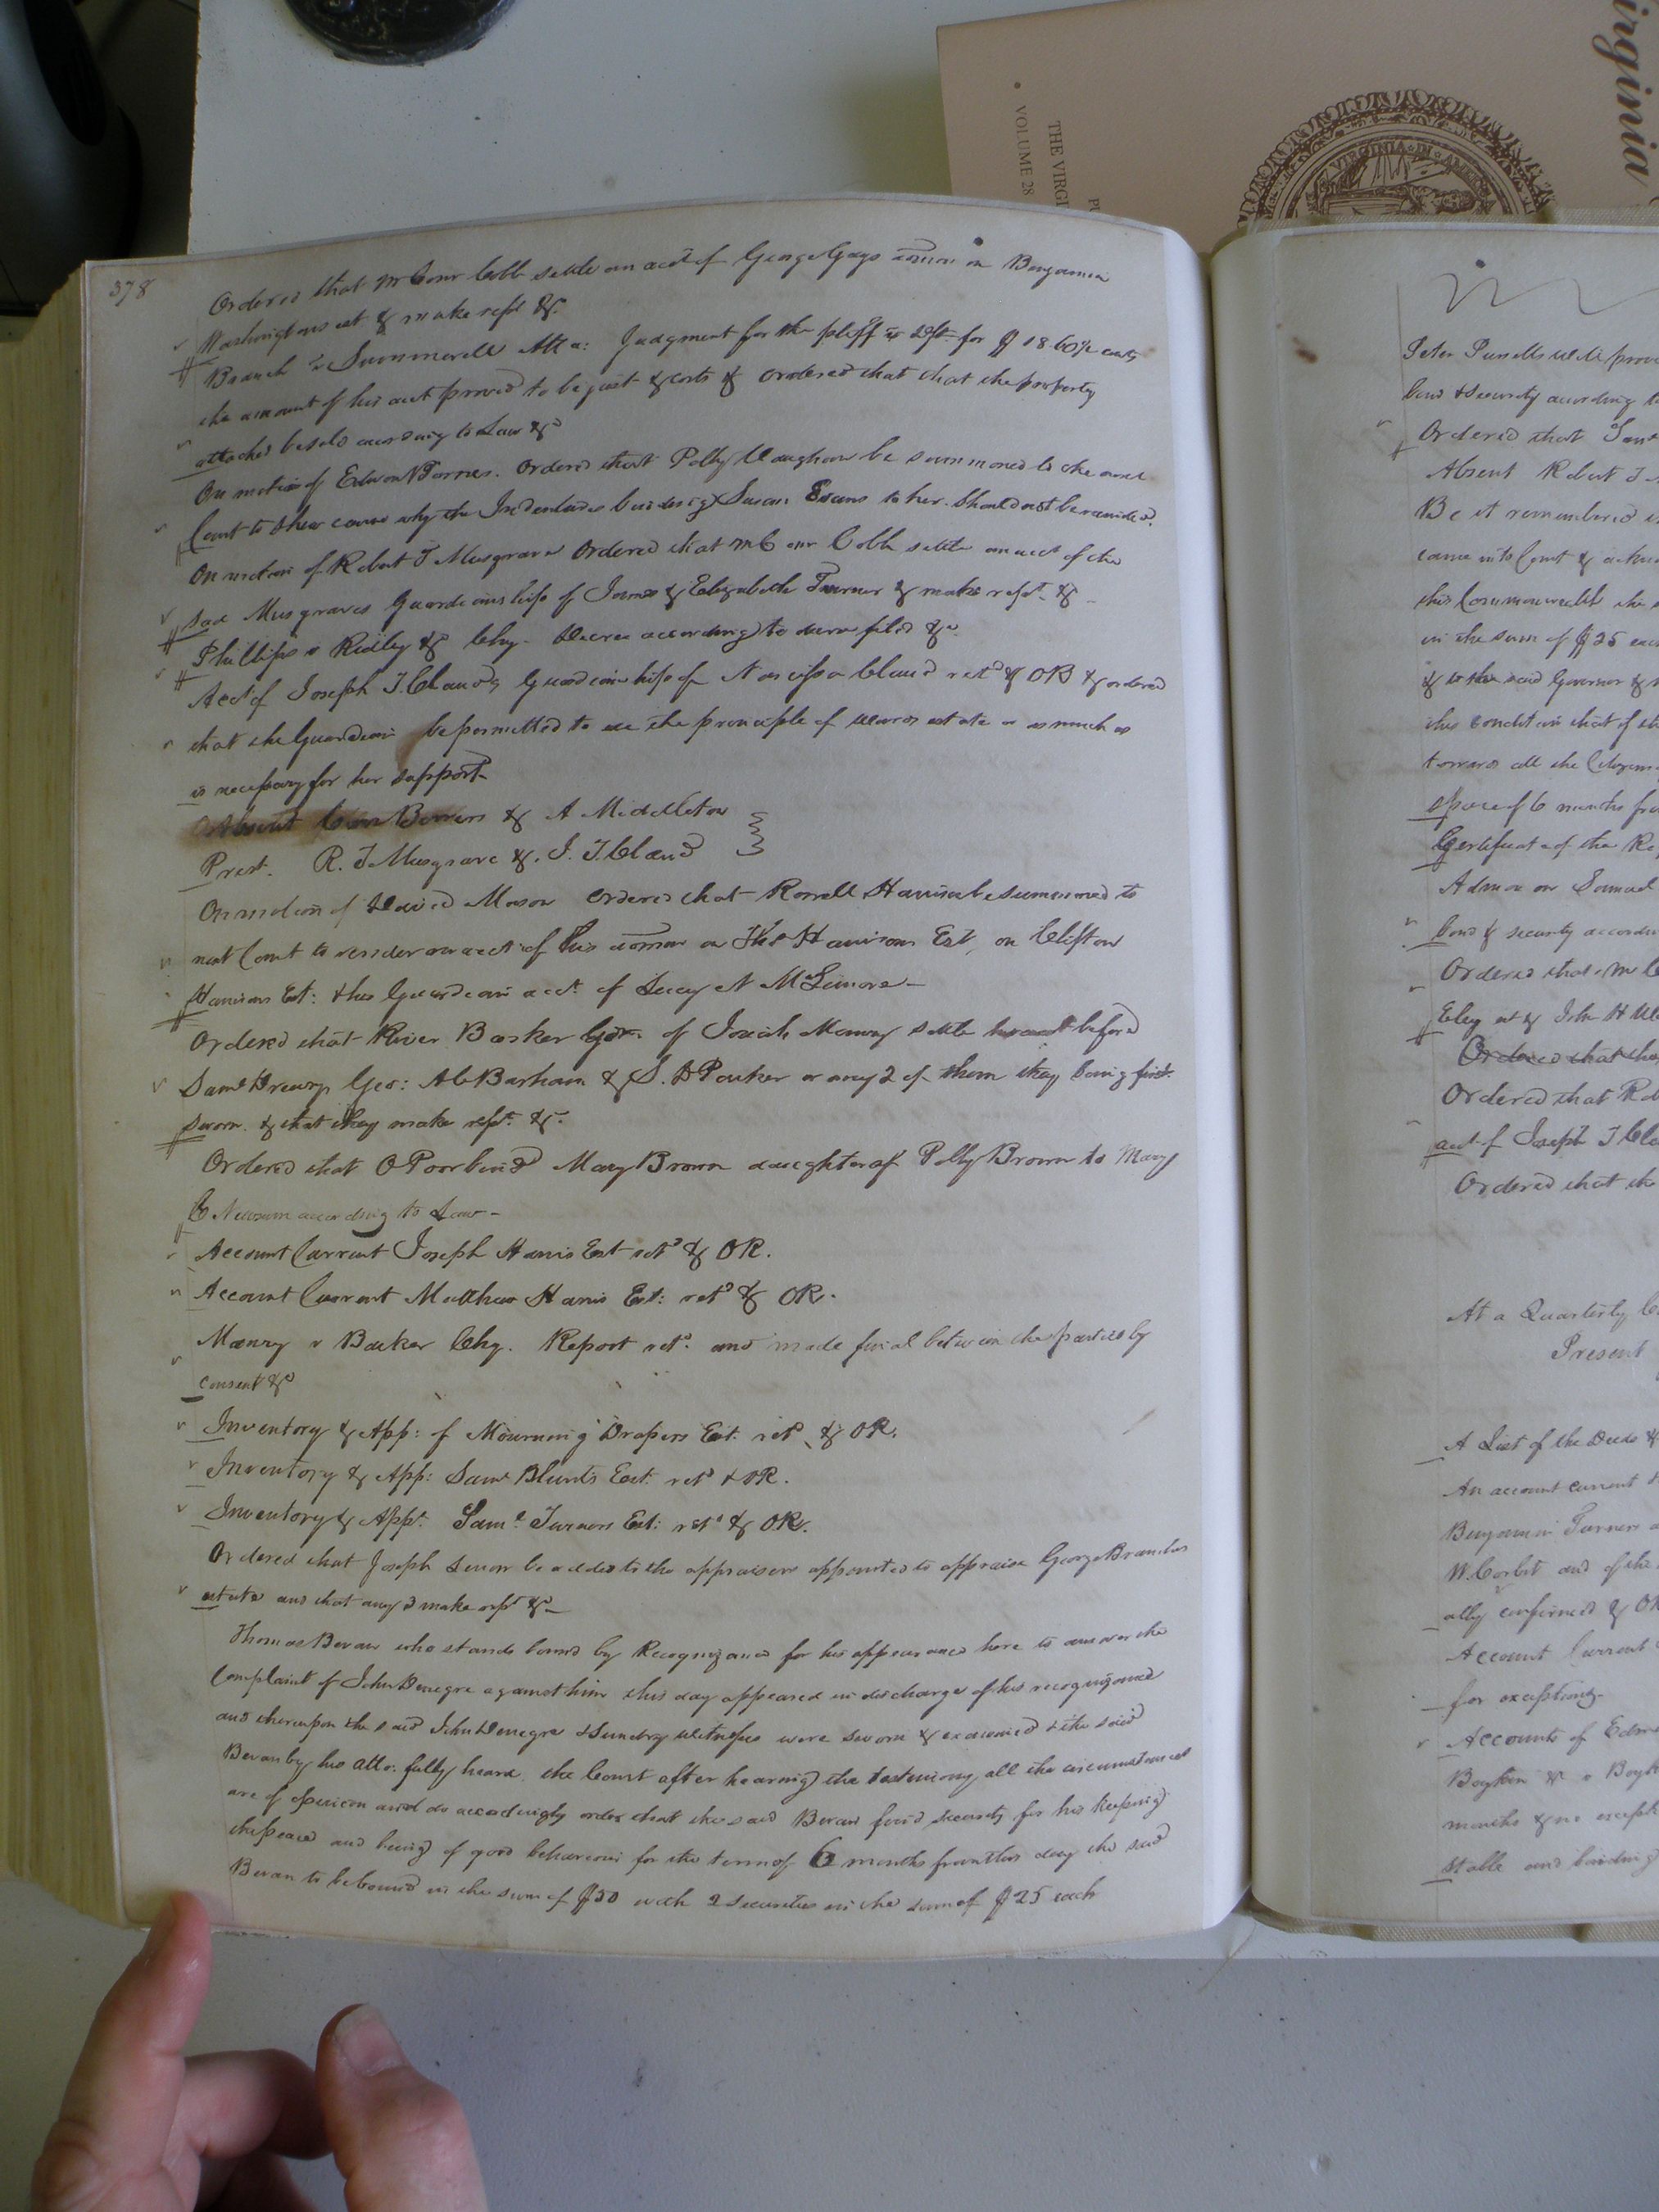 irginia
THE VIRGI
VOLUME 28
PU
VIRGINIA IN AMER
378
Ordered that Mr Comr Cobb settle an acct of George Grays admon on Benjamin
Washingtons est & make rept &c.
Branch vs Summerell Atta: Judgment for the pltff for $18.60½ cents
the amount of his acct proved to be just & costs & ordered that that the property
attached be sold according to Law &c
On motion of Edwon Barnes. Ordered that Polly Vaughan be summoned to the next
Court to shew cause why the Indentures binding Susan Evans to her should not be rescinded.
On motion of Robert T Musgrave Ordered that Mr Comr Cobb settle an acct of the
said Musgraves Guardianship of James & Elizabeth Turner & make rept &c
Phillips v Ridley &c Chy. Decree according to decree filed &c
Acct of Joseph T. Clauds Guardianship of Narcissa Claud retd & OR & ordered
that the Guardian be permitted to use the principle of wards estate or as much as
is necessary for her support
Absent & A Middleton
Prest. R. T Musgrave &. J. T Claud
On motion of David Mason Ordered that Harrison be summoned to
next Court to render an acct of his admon on Thos Harrisons Est, on Clifton
Harrisons Est: & his Guardian acct. of Lucy N McLemore
Ordered that River Barker Gdn. of Josiah Manry settle his acct before
Saml Drewry Geo: A C Barham & S. D Parker or any 2 of them they being first
sworn. & that they make rept. &c.
Ordered that O Poor bind Mary Brown daughter of Polly Brown to Mary
C Newsum according to Law
Account Current Joseph Harris Est retd & OR.
Account Current Matthew Harris Est: retd & OR.
Manry v Barker Chy. Report retd. and made final between the parties by
consent &c
Inventory & App: of Mourning Drapers Est. retd & OR.
Inventory & App: Saml Blunts Est: retd & OR.
Inventory & App. Saml Turners Est: retd & OR.
Ordered that Joseph be added to the appraisers appointed to appraise George Branches
estate and that any 3 make rept &c
Thomas Bevan who stands bound by Recognizance for his appearance here to answer the
Complaint of John Denegre against him this day appeared in discharge of his recognizance
and thereupon the said John Denegre & Sundry witnesses were sworn & examined & the said
Bevan by his atto. fully heard. the Court after hearing the testimony all the circumstances
are of opinion and do accordingly order that the said Bevan find security for his keeping
the peace and being of good behaviour for the term of 6 months from this day the said
Bevan to be bound in the sum of $50 with 2 securities in the sum of $25 each
Peter Purcells will prov
bond & security according t
Ordered that Saml
Absent Robert T
Be it remembered
came into Court &
this Commonwealth the
in the sum of $25 each
& to the said Governor &
this condition that if
towards all the Citizens
space of 6 months fro
Certificate of the
Admon on Samuel
bond & security accordin
Ordered that Mr C
Eley est & John H
Ordered that the
Ordered that Ro
acct of Joseph T Cla
Ordered that the
At a Quarterly C
Present
A List of the Deeds &
An account Current
Benjamin Turners
W. Corbit and of the
ally confirmed & OR
Account Current
for exceptions
Accounts of Edm
Boykin & Boyk
months & no excepti
Stable and binding